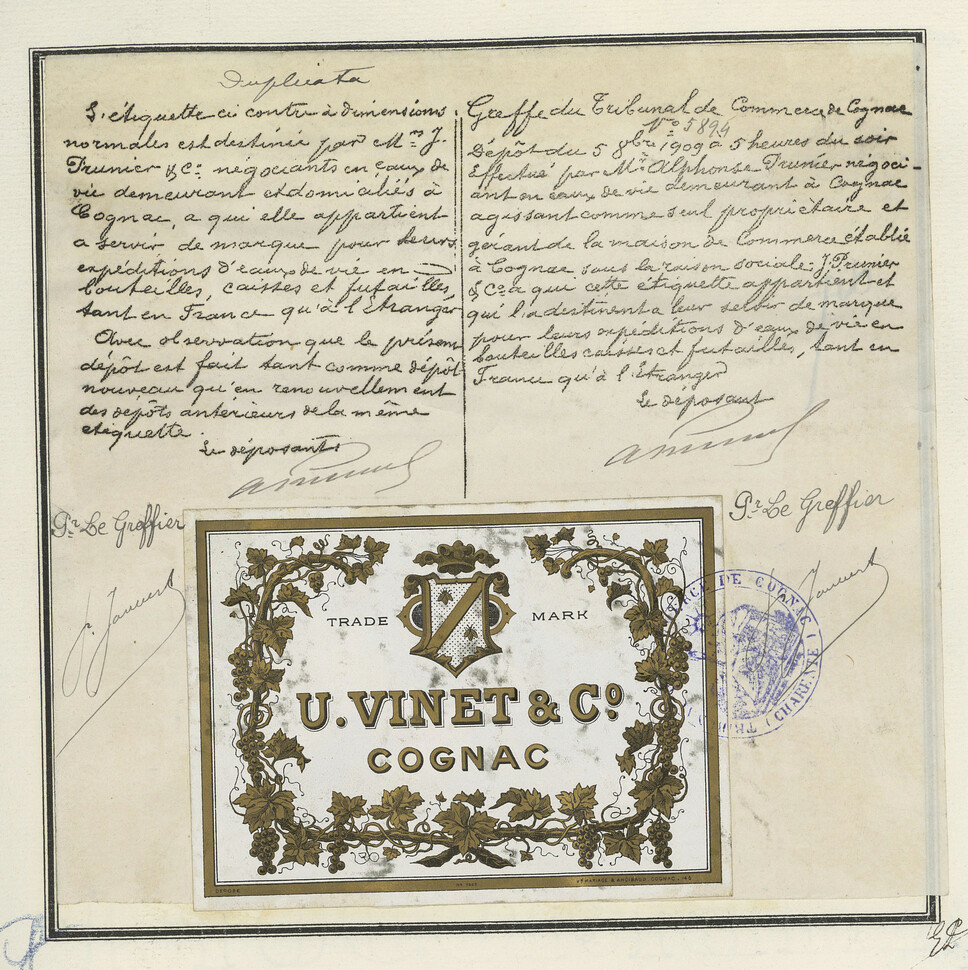 Duplicata
L'étiquette ci contre à dimensions
normales est destinée par Mrs J.
Prunier & Co négociants en eaux de
vie demeurant et domiciliés à
Cognac, a qui elle appartient
a servir de marque pour leurs
expéditions d'eaux de vie en
bouteilles, caisses et futailles,
tant en France qu'à l'Etranger
Avec observation que le présent
dépôt est fait tant comme dépôt
nouveau qu'en renouvellement
des dépôts antérieurs de la même
etiquette.
Le déposant
Pr Le Greffier
Greffe du Tribunal de Commerce de Cognac
No 5894
Dépôt du 5 9bre 1909 à 5 heures du soir
Effectué par Mr Alphonse Prunier négoci-
ant en eaux de vie demeurant à Cognac
agissant comme seul propriétaire et
gérant de la maison de Commerce établie
à Cognac sous la raison sociale: J. Prunier
& Co a qui cette étiquette appartient et
qui l'a destinent a leur servir de marque
pour leurs expéditions d'eaux de vie en
bouteilles caisses et futailles, tant en
France qu'à l'Etranger
Le déposant
Pr Le Greffier
TRADE MARK
U. VINET & Co
COGNAC
DÉPOSÉ
COGNAC
(CHARENTE)